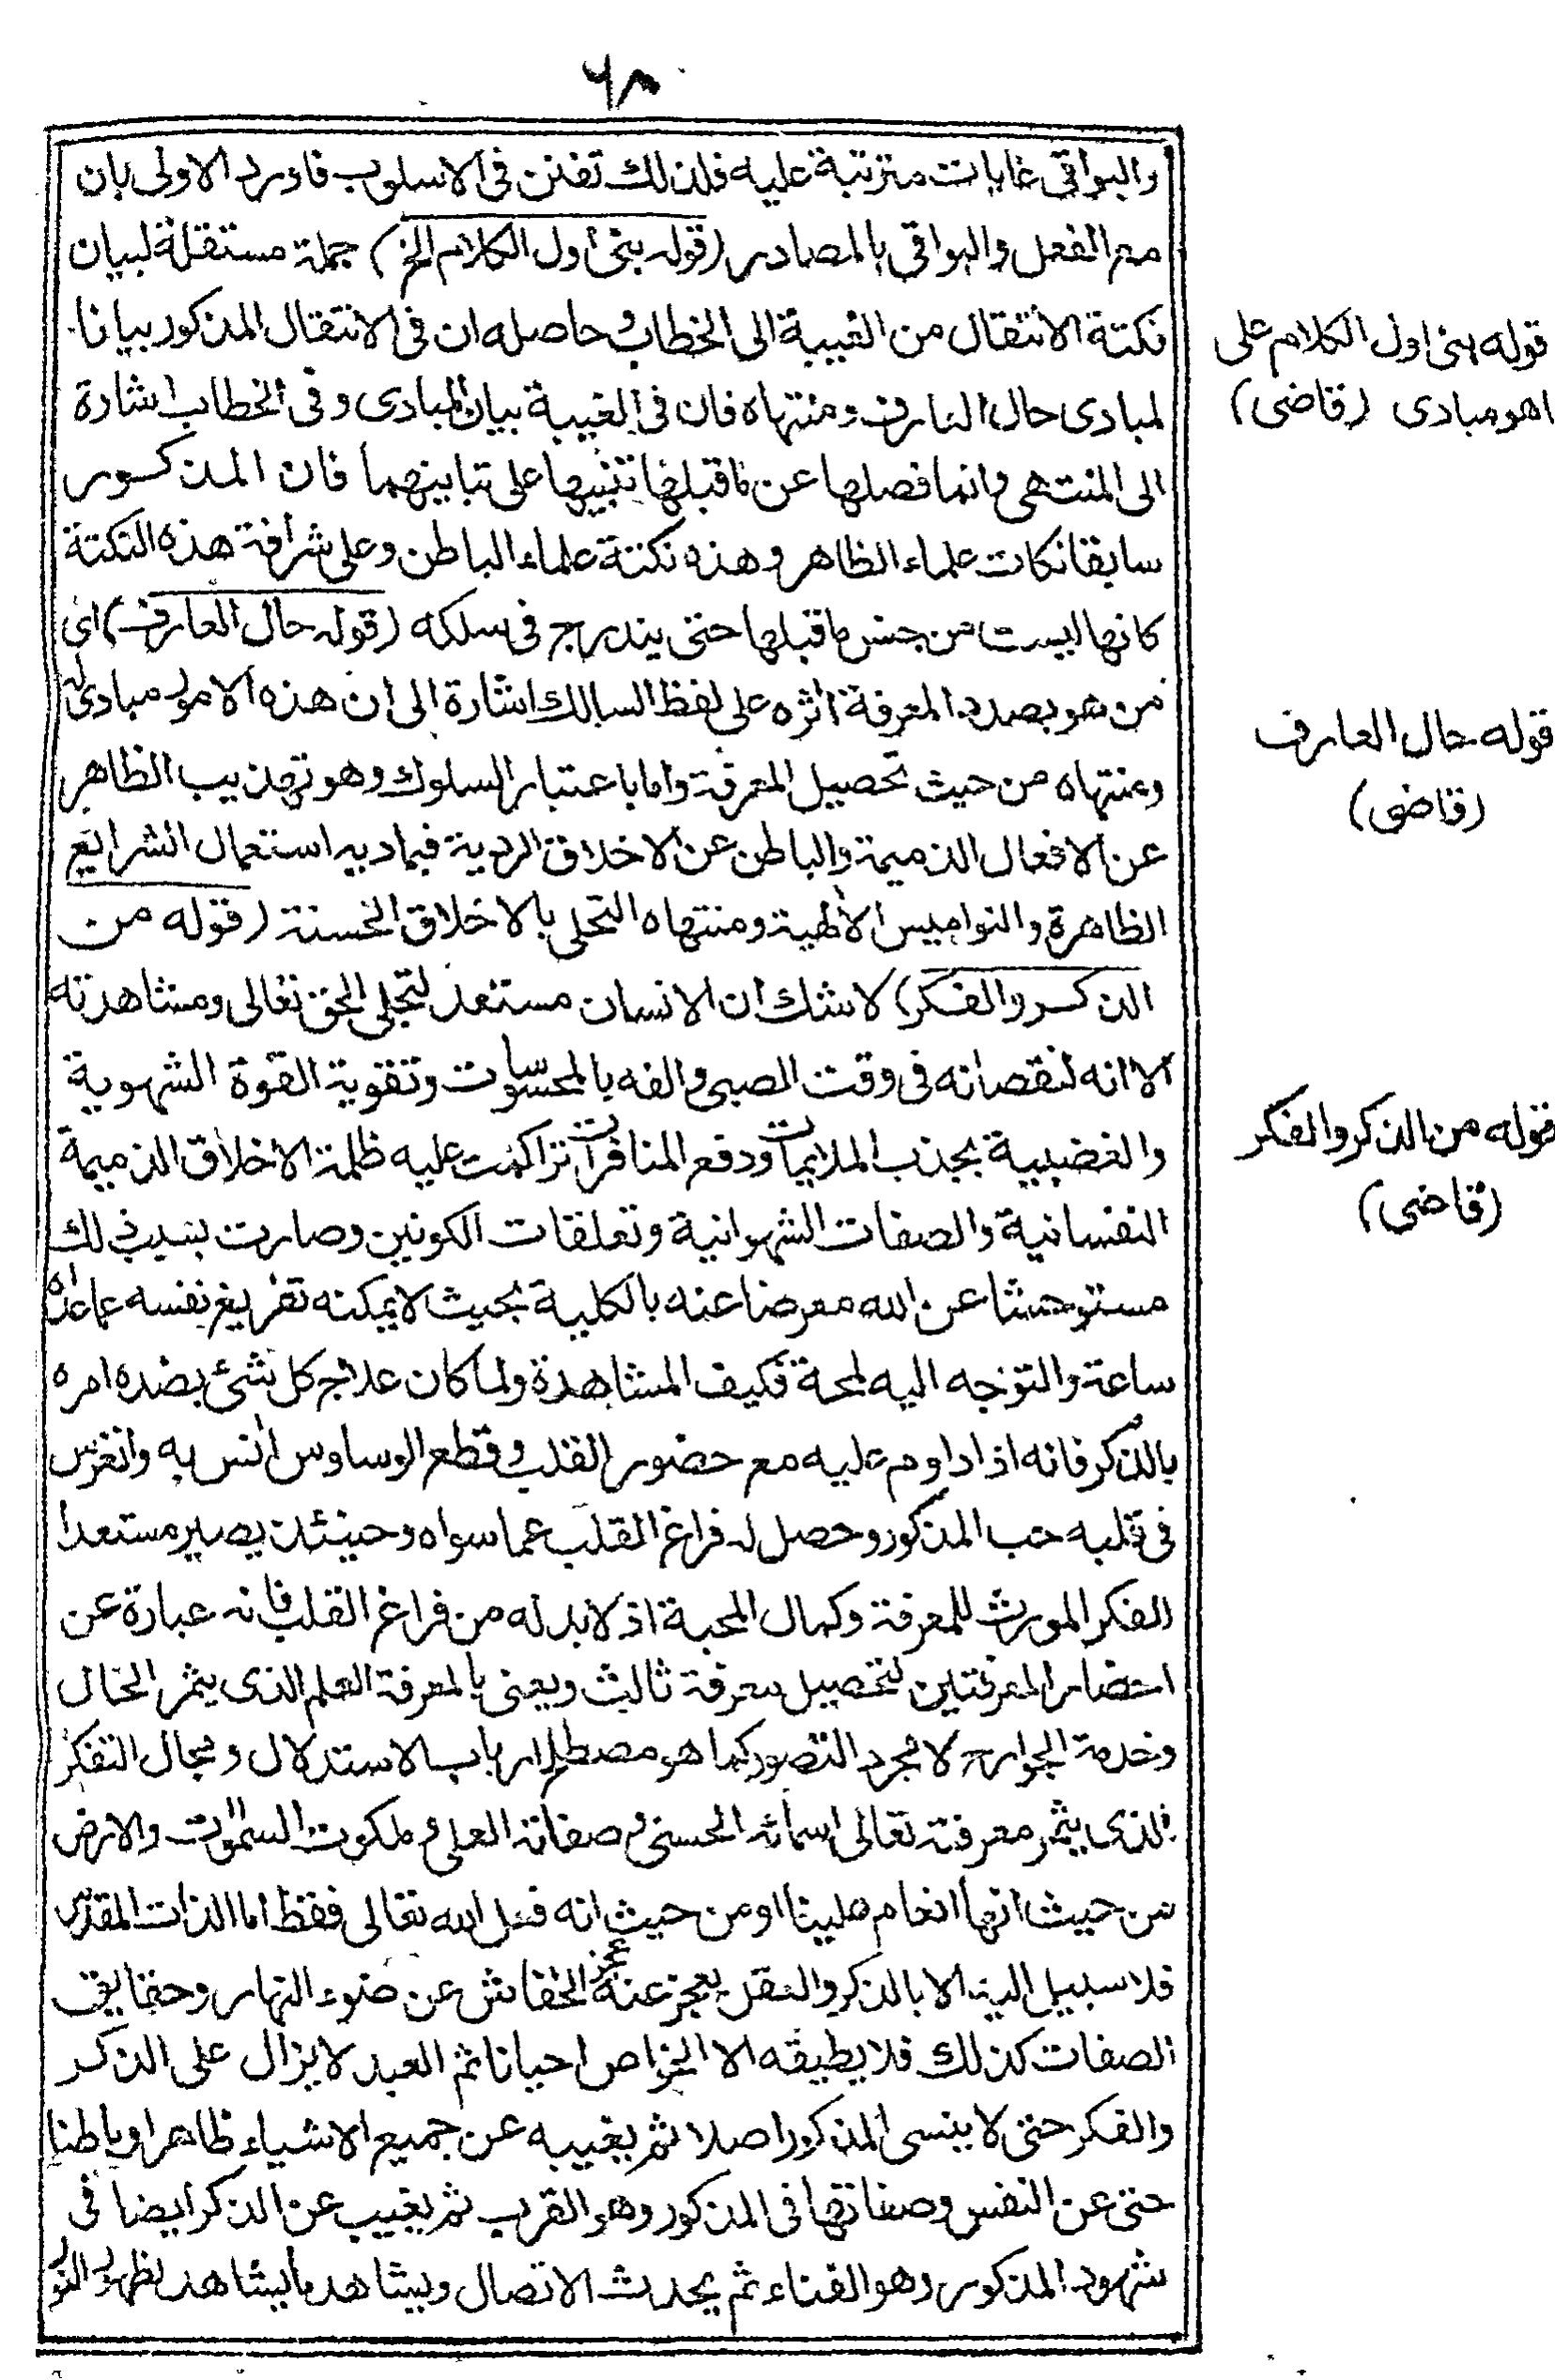 ٦٨
والبواقى غايات مترتبة عليه فلذلك تفنن فى الاسلوب فاورد الاولى بان
مع الفعل والبواقى بالمصادر (قوله بنى اول الكلام الخ) جملة مستقلة لبيان
نكتة الانتقال من الغيبة الى الخطاب وحاصله ان فى الانتقال المذكور بيانا
لمبادى حال العارف ومنتهاه فان فى الغيبة بيان المبادى وفى الخطاب اشارة
الى المنتهى وانما فصلها عن ما قبلها تنبيها على تباينهما فان المذكور
سابقا نكات علماء الظاهر وهذه نكتة علماء الباطن وعلى شرافة هذه النكتة
كانها ليست من جنس ما قبلها حتى يندرج فى سلكه (قوله حال العارف) اى
من هو بصدد المعرفة اثره على لفظ السالك اشارة الى ان هذه الامور مبادى له
ومنتهاه من حيث تحصيل المعرفة واما باعتبار السلوك وهو تهذيب الظاهر
عن الافعال الذميمة والباطن عن الاخلاق الردية فمباديه استعمال الشرايع
الظاهرة والنواميس الالهية ومنتهاه التحلى بالاخلاق الحسنة (قوله من
الذكر والفكر) لا شك ان الانسان مستعد لتجلى الحق تعالى ومشاهدته
الا انه لنقصانه فى وقت الصبى والفه بالمحسوسات وتقوية القوة الشهوية
والغضبية بجذب الملايمات ودفع المنافرات تراكمت عليه ظلمة الاخلاق الذميمة
النفسانية والصفات الشهوانية وتعلقات الكونين وصارت بسبب ذلك
مستوحشا عن الله معرضا عنه بالكلية بحيث لا يمكنه تفريغ نفسه عما عداه
ساعة والتوجه اليه لمحة فكيف المشاهدة ولما كان علاج كل شئ بضده امره
بالذكر فانه اذا داوم عليه مع حضور القلب وقطع الوساوس انس به وانغرس
فى قلبه حب المذكور وحصل له فراغ القلب عما سواه وحينئذ يصير مستعدا
الفكر المورث للمعرفة وكمال المحبة اذ لا بد له من فراغ القلب فانه عبارة عن
احضار المعرفتين لتحصيل معرفة ثالث ويعنى بالمعرفة العلم الذى يثمر الحال
وخدمة الجوارح لا مجرد التصور كما هو مصطلح ارباب الاستدلال ومجال التفكر
الذى يثمر معرفته تعالى اسمائه الحسنى وصفاته العلى وملكوت السموات والارض
من حيث انها انعام علينا او من حيث انه فعل الله تعالى فقط اما الذات المقدس
فلا سبيل اليه الا بالذكر والعقل يعجز عنه عجز الخفاش عن ضوء النهار وحقايق
الصفات كذلك فلا يطيقه الا الخواص احيانا ثم العبد لا يزال على الذكر
والفكر حتى لا ينسى المذكور اصلا ثم يغيبه عن جميع الاشياء ظاهرا وباطنا
حتى عن النفس وصفاتها فى المذكور وهو القرب ثم يغيب عن الذكر ايضا فى
شهود المذكور وهو الفناء ثم يحدث الاتصال ويشاهد ما يشاهد لظهور النور
قوله بنى اول الكلام على
ما هو مبادى (قاضى)
قوله حال العارف
(قاضى)
قوله من الذكر والفكر
(قاضى)